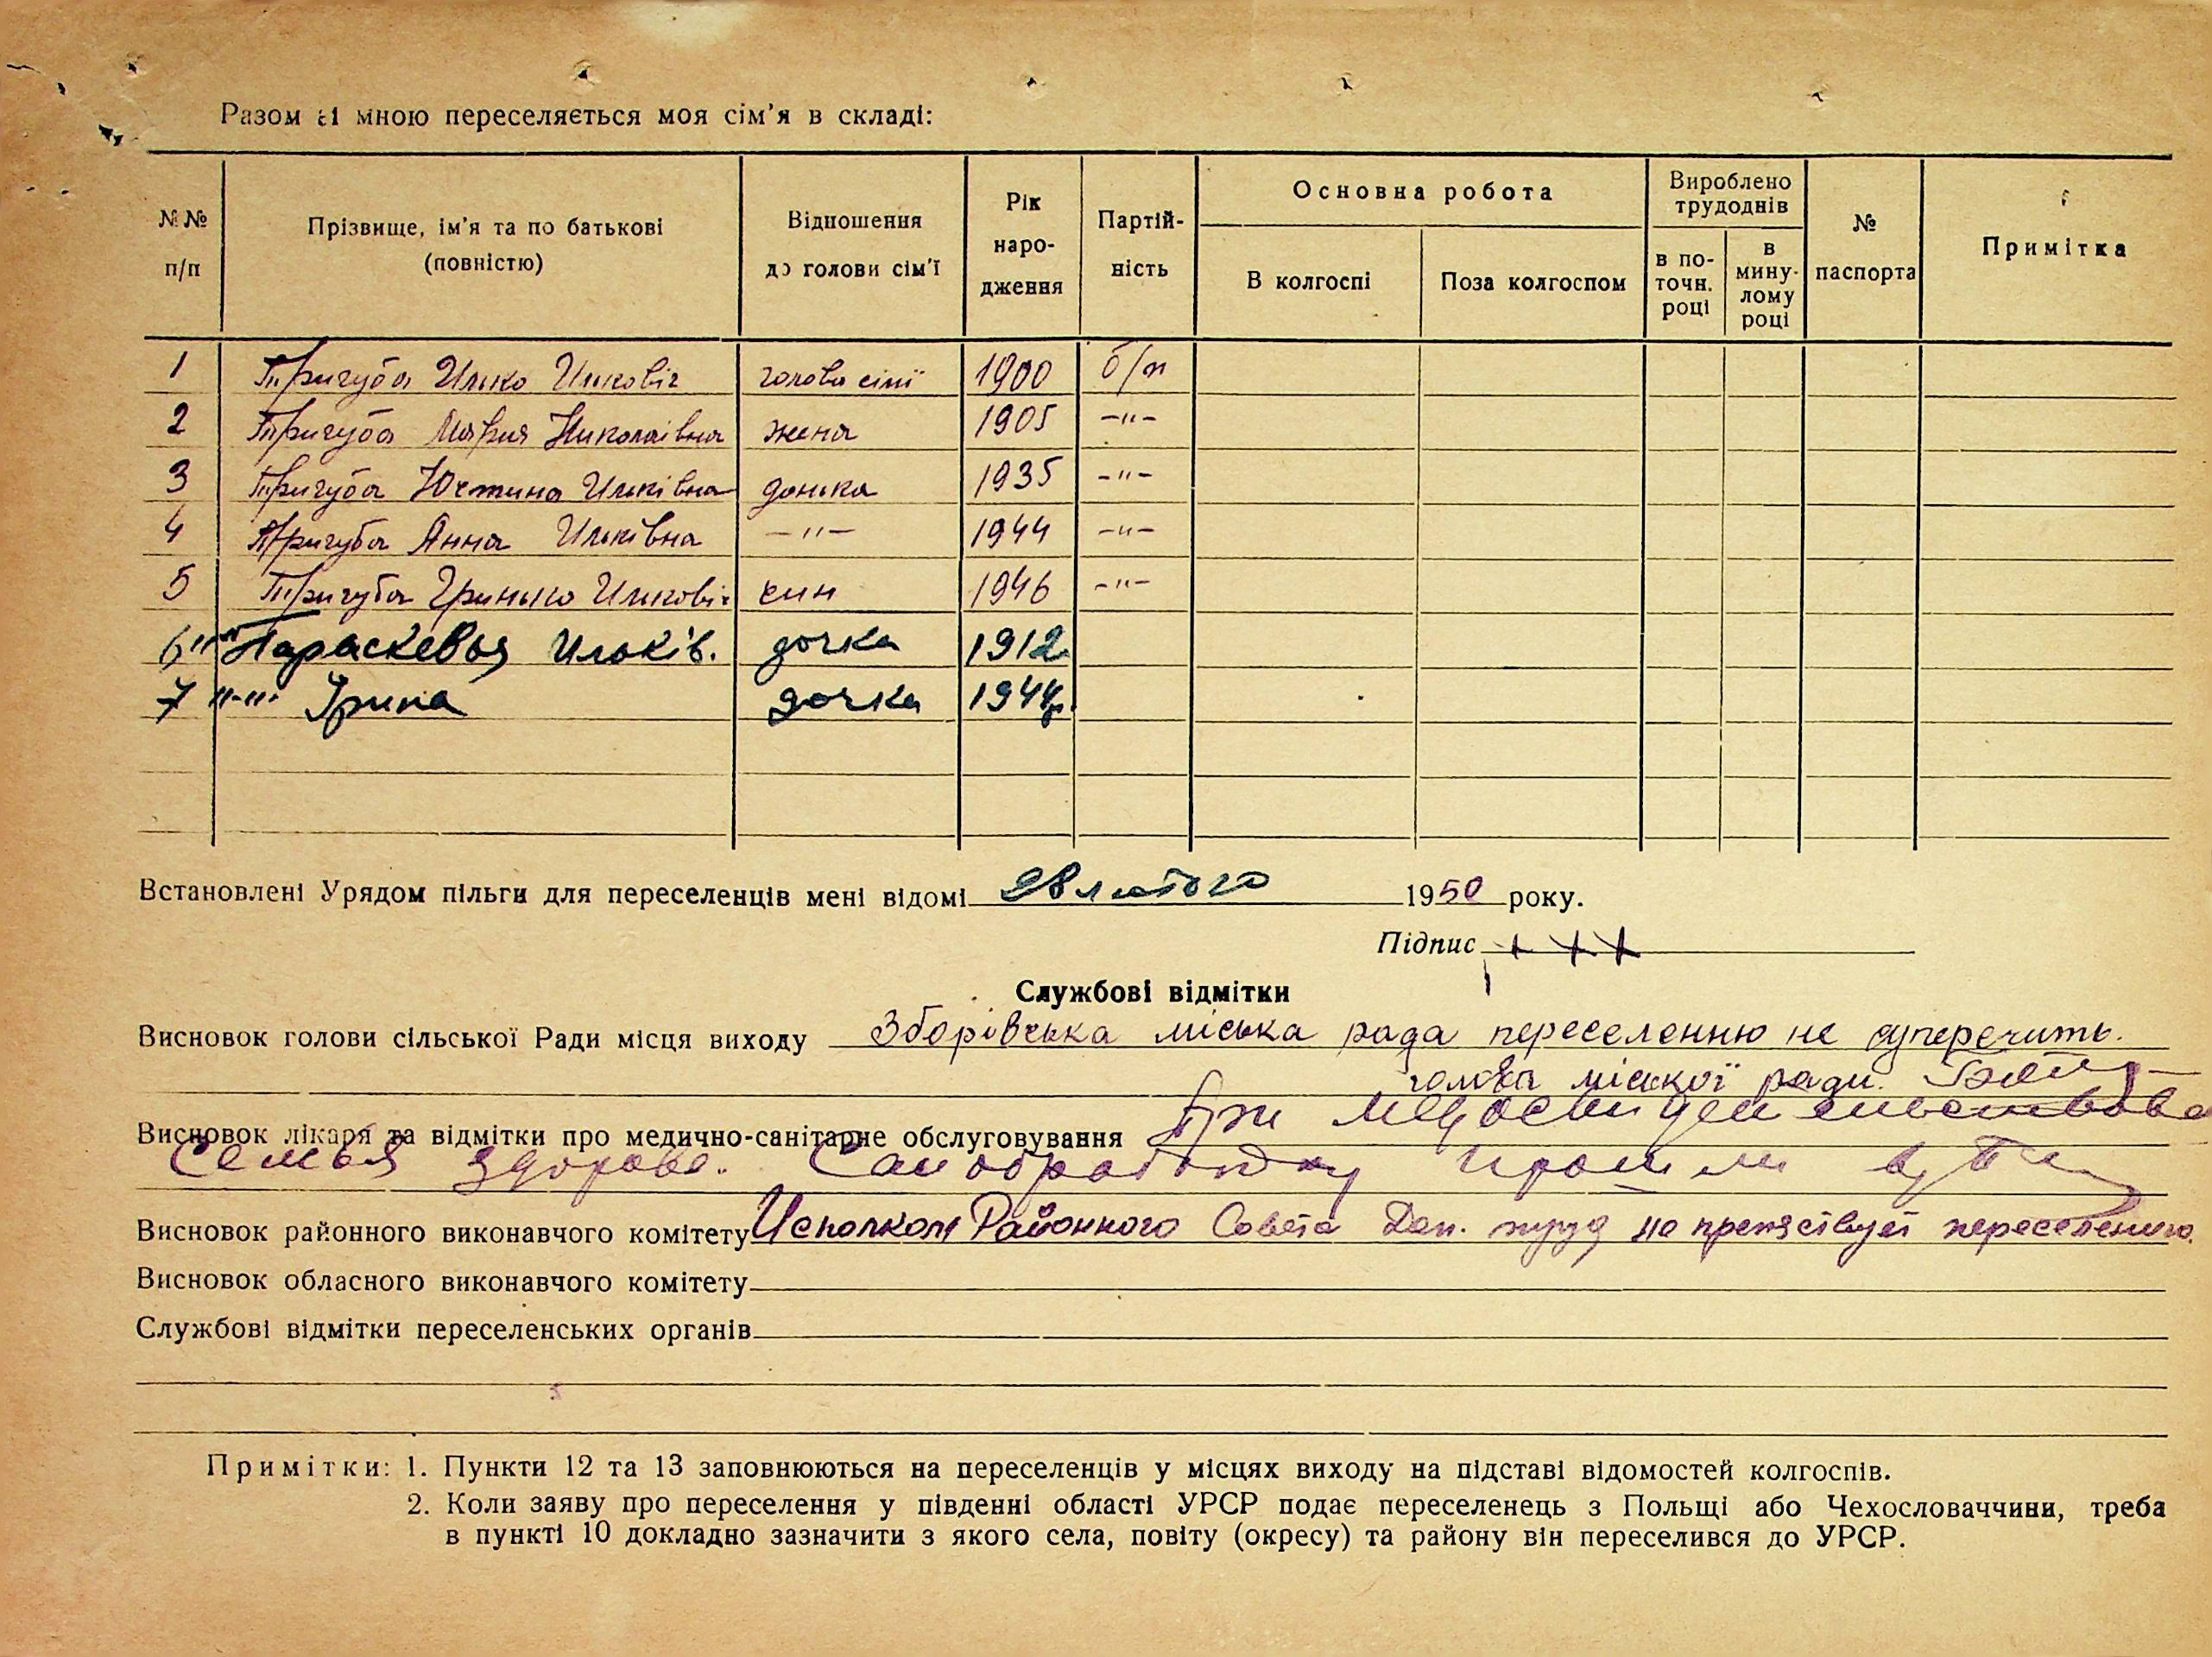 Разом зі мною переселяється моя сім'я в складі:
№№ п/п
Прізвище, ім'я та по батькові (повністю)
Відношення до голови сім'ї
Рік народження
Партійність
Основна робота
В колгоспі
Поза колгоспом
Вироблено трудоднів
в поточн. році
в минулому році
№ паспорта
Примітка
1 Тригуба Илько Илькович голова сімї 1900 б/п
2 Тригуба Мария Николаівна жена 1905 -"-
3 Тригуба Юстина Ильківна донька 1935 -"-
4 Тригуба Анна Ильківна -"- 1944 -"-
5 Тригуба Гринько Илькович син 1946 -"-
6 "-" Параскевья Ильків. дочка 1912
7 "-" Ірина дочка 1944
Встановлені Урядом пільги для переселенців мені відомі 28 лютого 1950 року.
Підпис + + +
Службові відмітки
Висновок голови сільської Ради місця виходу Зборівська міська рада переселенню не суперечить.
голова міської ради.
Висновок лікаря та відмітки про медично-санітарне обслуговування При медосвидетельствова
Семья здорова. Санобработку прошли
Висновок районного виконавчого комітету Исполком Районного Совета Деп. труд не препятствует переселению.
Висновок обласного виконавчого комітету
Службові відмітки переселенських органів
Примітки: 1. Пункти 12 та 13 заповнюються на переселенців у місцях виходу на підставі відомостей колгоспів.
2. Коли заяву про переселення у південні області УРСР подає переселенець з Польщі або Чехословаччини, треба
в пункті 10 докладно зазначити з якого села, повіту (окресу) та району він переселився до УРСР.